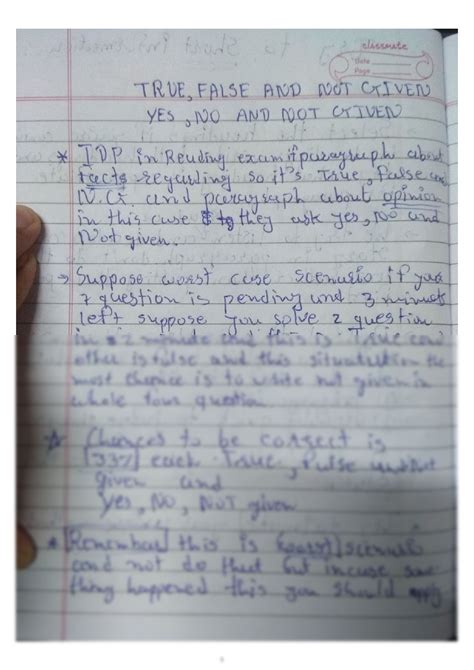 classmate
Date
Page
TRUE, FALSE AND NOT GIVEN
YES, NO AND NOT GIVEN
* IDP in Reading exam if paragraph about
facts regarding so it's True, False and
N.G. and paragraph about opinion
in this case they ask yes, No and
Not given.
→ Suppose worst case scenario if your
7 question is pending and 3 minutes
left suppose you solve 2 question
in 2 minute and this is True and
other is false and this situation the
most chance is to write not given in
whole four question
Chances to be correct is
33% each True, False and Not
given and
Yes, No, Not given
* Remember this is worst scenario
and not do that but incase some
thing happened this you should apply